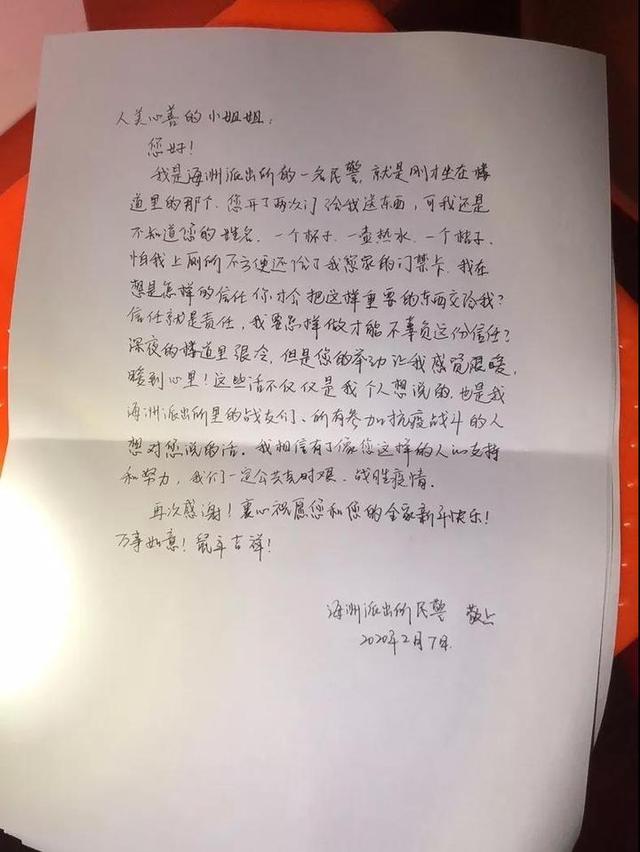 人美心善的小姐姐：
您好！
我是海洲派出所的一名民警，就是刚才坐在楼
道里的那个。您开了两次门给我送东西，可我还是
不知道您的姓名。一个杯子、一壶热水、一个桔子、
怕我上厕所不方便还给了我您家的门禁卡。我在
想是怎样的信任你才会把这样重要的东西交给我？
信任就是责任，我要怎样做才能不辜负这份信任？
深夜的楼道里很冷，但是您的举动让我感觉很暖，
暖到心里！这些话不仅仅是我个人想说的，也是我
海洲派出所里的战友们、所有参加抗疫战斗的人
想对您说的话。我相信有了像您这样的人的支持
和努力，我们一定会共克时艰、战胜疫情。
再次感谢！衷心祝愿您和您的全家新年快乐！
万事如意！鼠年吉祥！
海洲派出所民警 敬上
2020年2月7日.